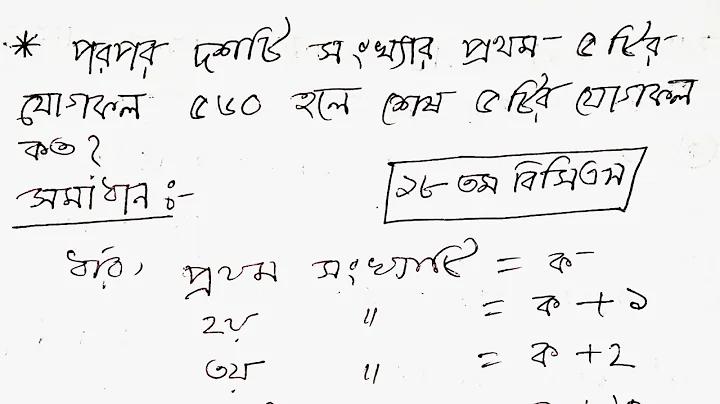 * পরপর দশটি সংখ্যার প্রথম ৫ টির
যোগফল ৫৬০ হলে শেষ ৫ টির যোগফল
কত?
সমাধান :-
১৮ তম বিসিএস
ধরি, প্রথম সংখ্যাটি = ক
২য় " = ক + ১
৩য় " = ক + ২